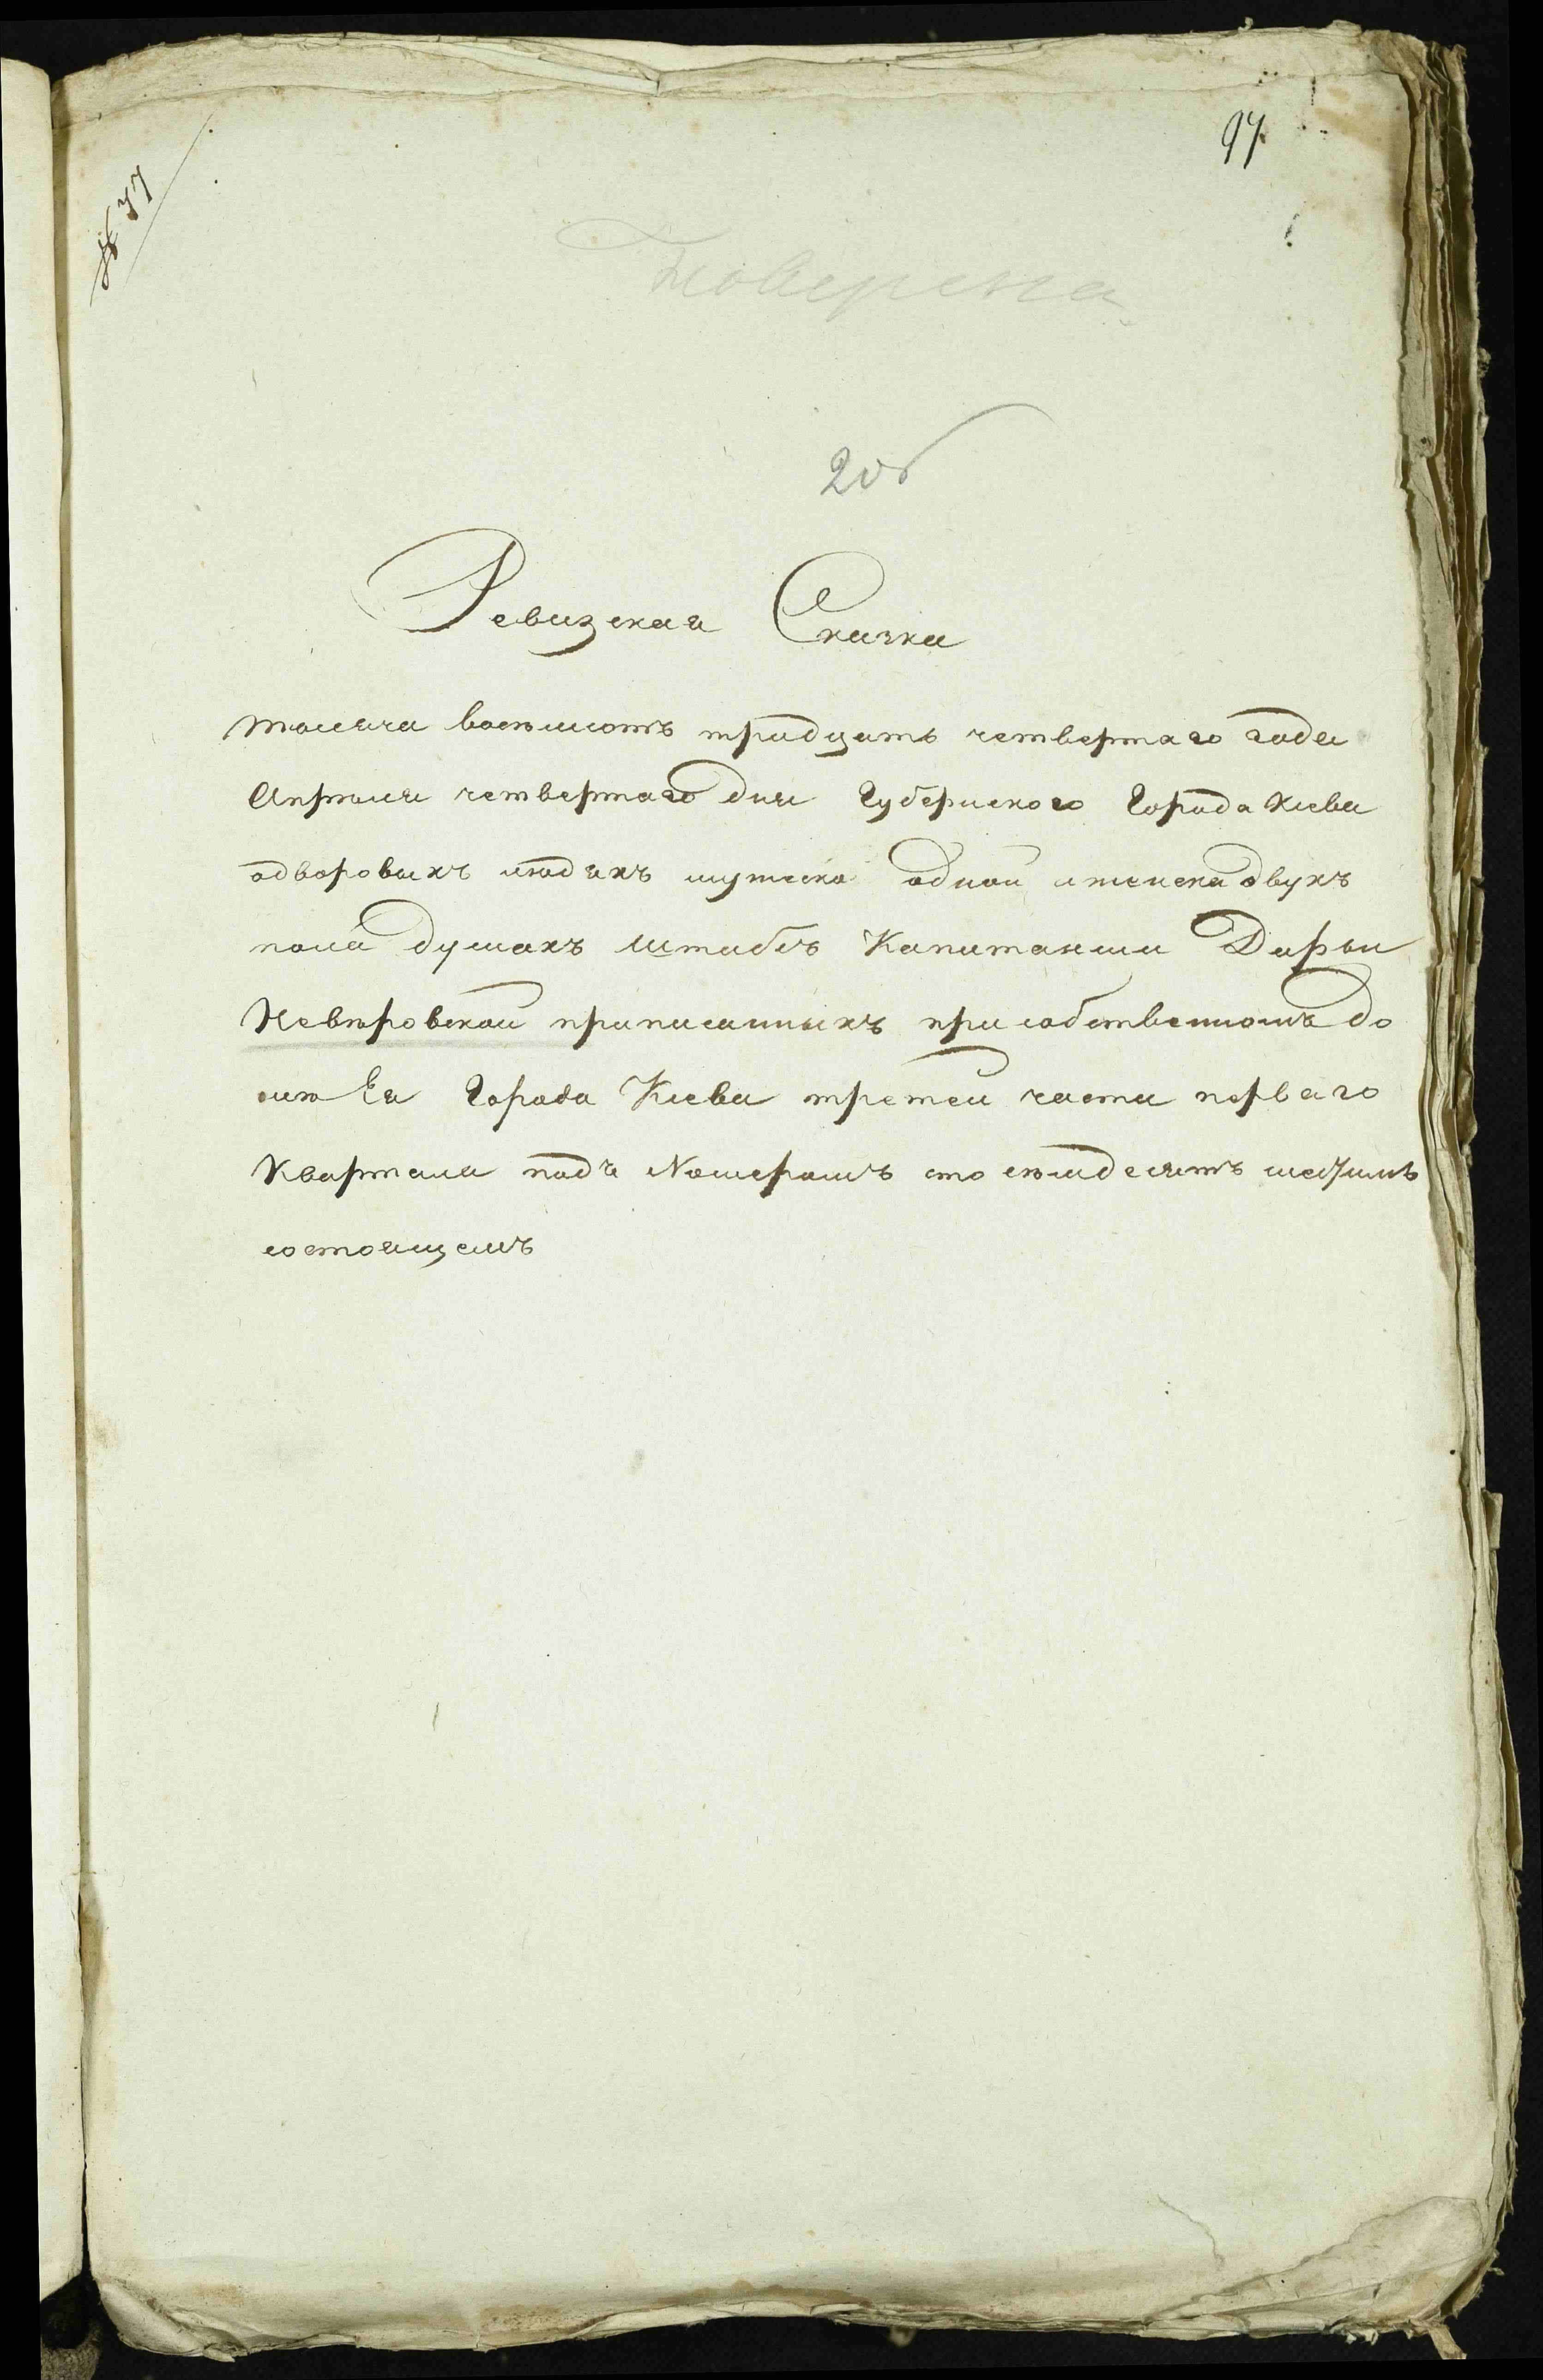 97
№ 77
Поверена
206
Ревизская Сказка
тысяча восемьсотъ тридцать четвертаго года
Апреля четвертаго дня Губернского Города Киева
одворовыхъ людяхъ мужеска одной иженска двухъ
пола душахъ Штабсъ Капитанши Дарьи
Невѣровской приписанныхъ при собственномъ до
мѣ Ея Города Киева третей части перваго
Квартала подъ Номеромъ сто семдесятъ
состоящемъ